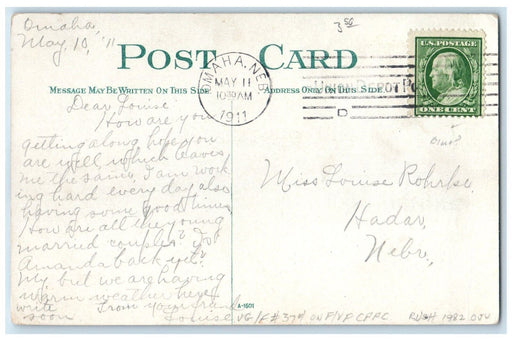 Omaha
May, 10, '11
3 50
POST CARD
MESSAGE MAY BE WRITTEN ON THIS SIDE
ADDRESS ONLY ON THIS SIDE
OMAHA, NEB.
MAY 11
10 AM
1911
UNION DEPOT
D
U.S. POSTAGE
ONE CENT
Dear Louise:
How are you
getting along, hope you
are well which leaves
me the same. I am work
ing hard every day also
having some good times
How are all the young
married couples? Is
Amanda back yet?
My, but we are having
warm weather here
write From your friend
soon Louise
Miss Louise Rohrke,
Hadar,
Nebr,
A-1601
VG/F #374 ON F/VF CPPC RUSH 1982